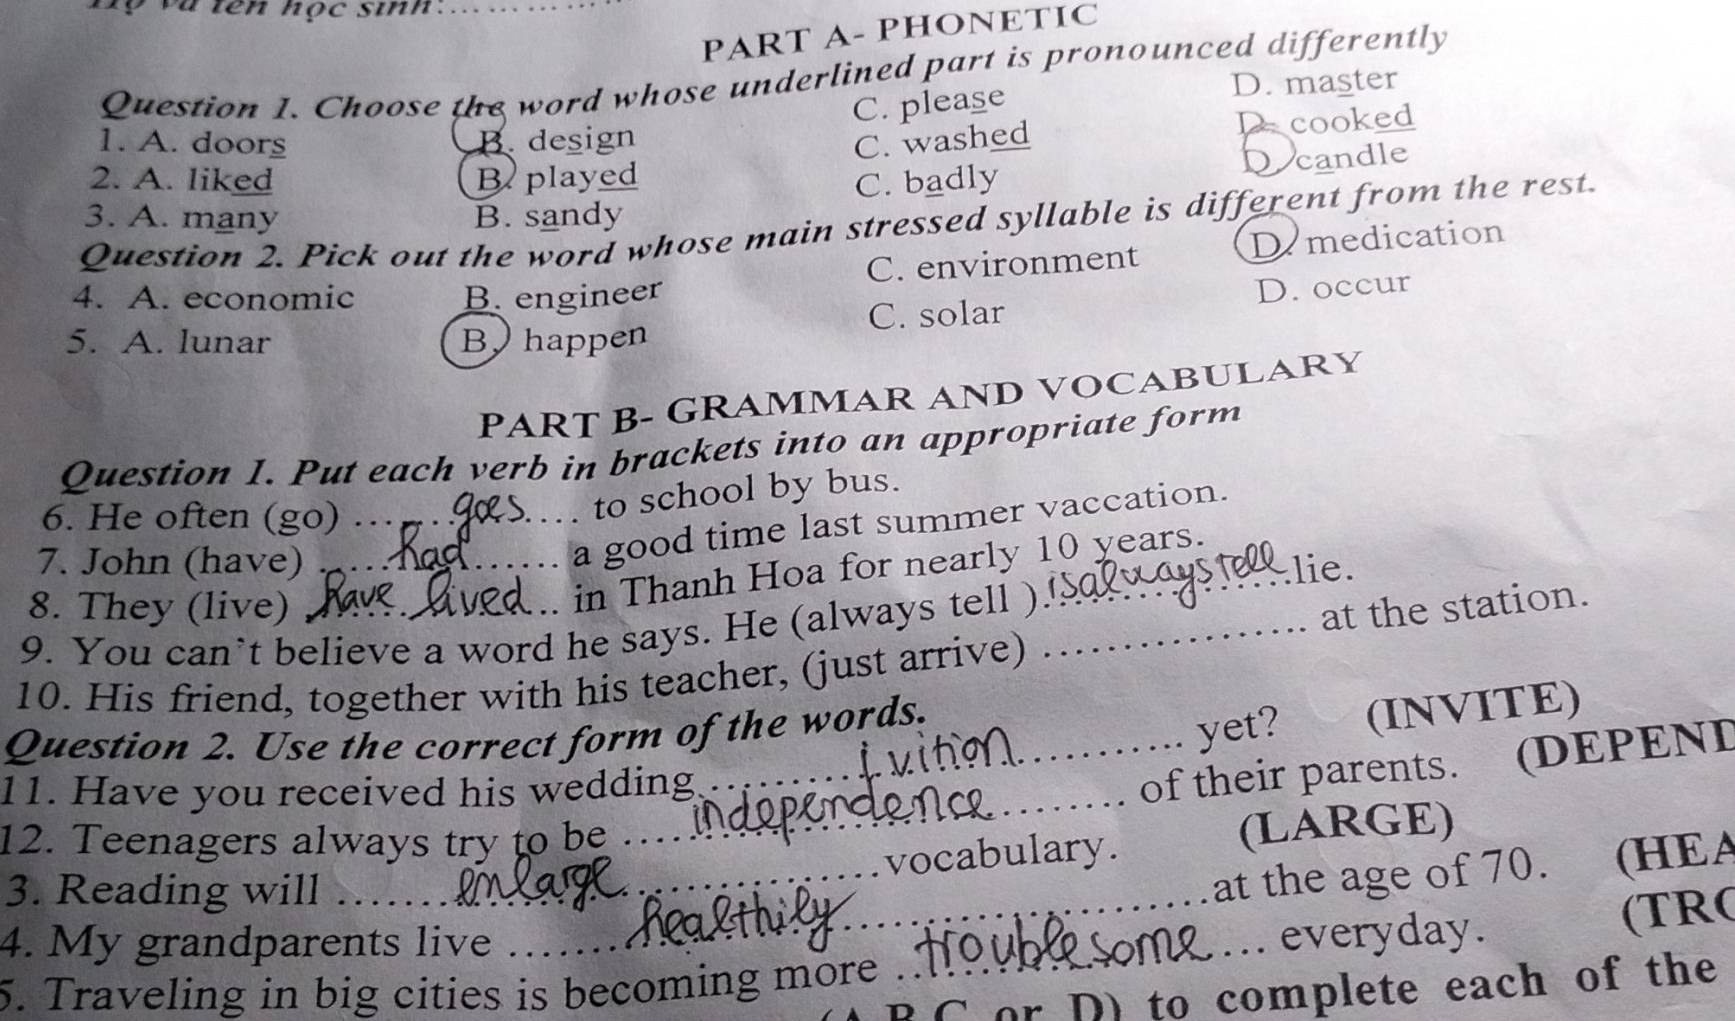 và tên học sinh:..................
PART A- PHONETIC
Question 1. Choose the word whose underlined part is pronounced differently
1. A. doors B. design C. please D. master
2. A. liked B. played C. washed D. cooked
3. A. many B. sandy C. badly D. candle
Question 2. Pick out the word whose main stressed syllable is different from the rest.
4. A. economic B. engineer C. environment D. medication
5. A. lunar B. happen C. solar D. occur
PART B- GRAMMAR AND VOCABULARY
Question 1. Put each verb in brackets into an appropriate form
6. He often (go) .......goes.... to school by bus.
7. John (have) .....had...... a good time last summer vaccation.
8. They (live) ..have lived... in Thanh Hoa for nearly 10 years.
9. You can't believe a word he says. He (always tell ).is always tell..lie.
10. His friend, together with his teacher, (just arrive) .................. at the station.
Question 2. Use the correct form of the words.
11. Have you received his wedding.......... ivition.......... yet? (INVITE)
12. Teenagers always try to be ....independence....... of their parents. (DEPEND
3. Reading will .......enlarge.............vocabulary. (LARGE)
4. My grandparents live .......healthily..............at the age of 70. (HEA
5. Traveling in big cities is becoming more ..troublesome.... everyday. (TRO
(A B C or D) to complete each of the